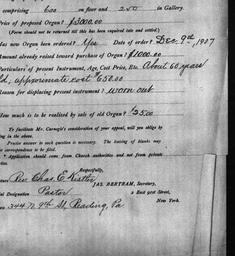 comprising 600 on floor and 250 in Gallery.
Price of proposed Organ? $3000.00
(Form should not be returned till this has been required data and settled.)
Has new Organ been ordered? Yes Date of order? Dec 9th, 1907
Amount already raised toward purchase of Organ? $1000.00
Particulars of present Instrument, Age, Cost Price, Etc. About 60 years
old, approximate cost $650.00
Reason for displacing present instrument? worn out
How much is to be realised by sale of old Organ? $25.00
To facilitate Mr. Carnegie's consideration of your appeal, will you oblige by
ing in the above.
Precise answer to each question is necessary. The leaving of blanks may
correspondence to be filed.
Application should come from Church authorities and not from private
Respectfully,
JAS. BERTRAM, Secretary,
Rev. Chas. E. Kistler
ial Designation Pastor 2 East 91st Street,
New York.
344 N. 9th St. Reading, Pa